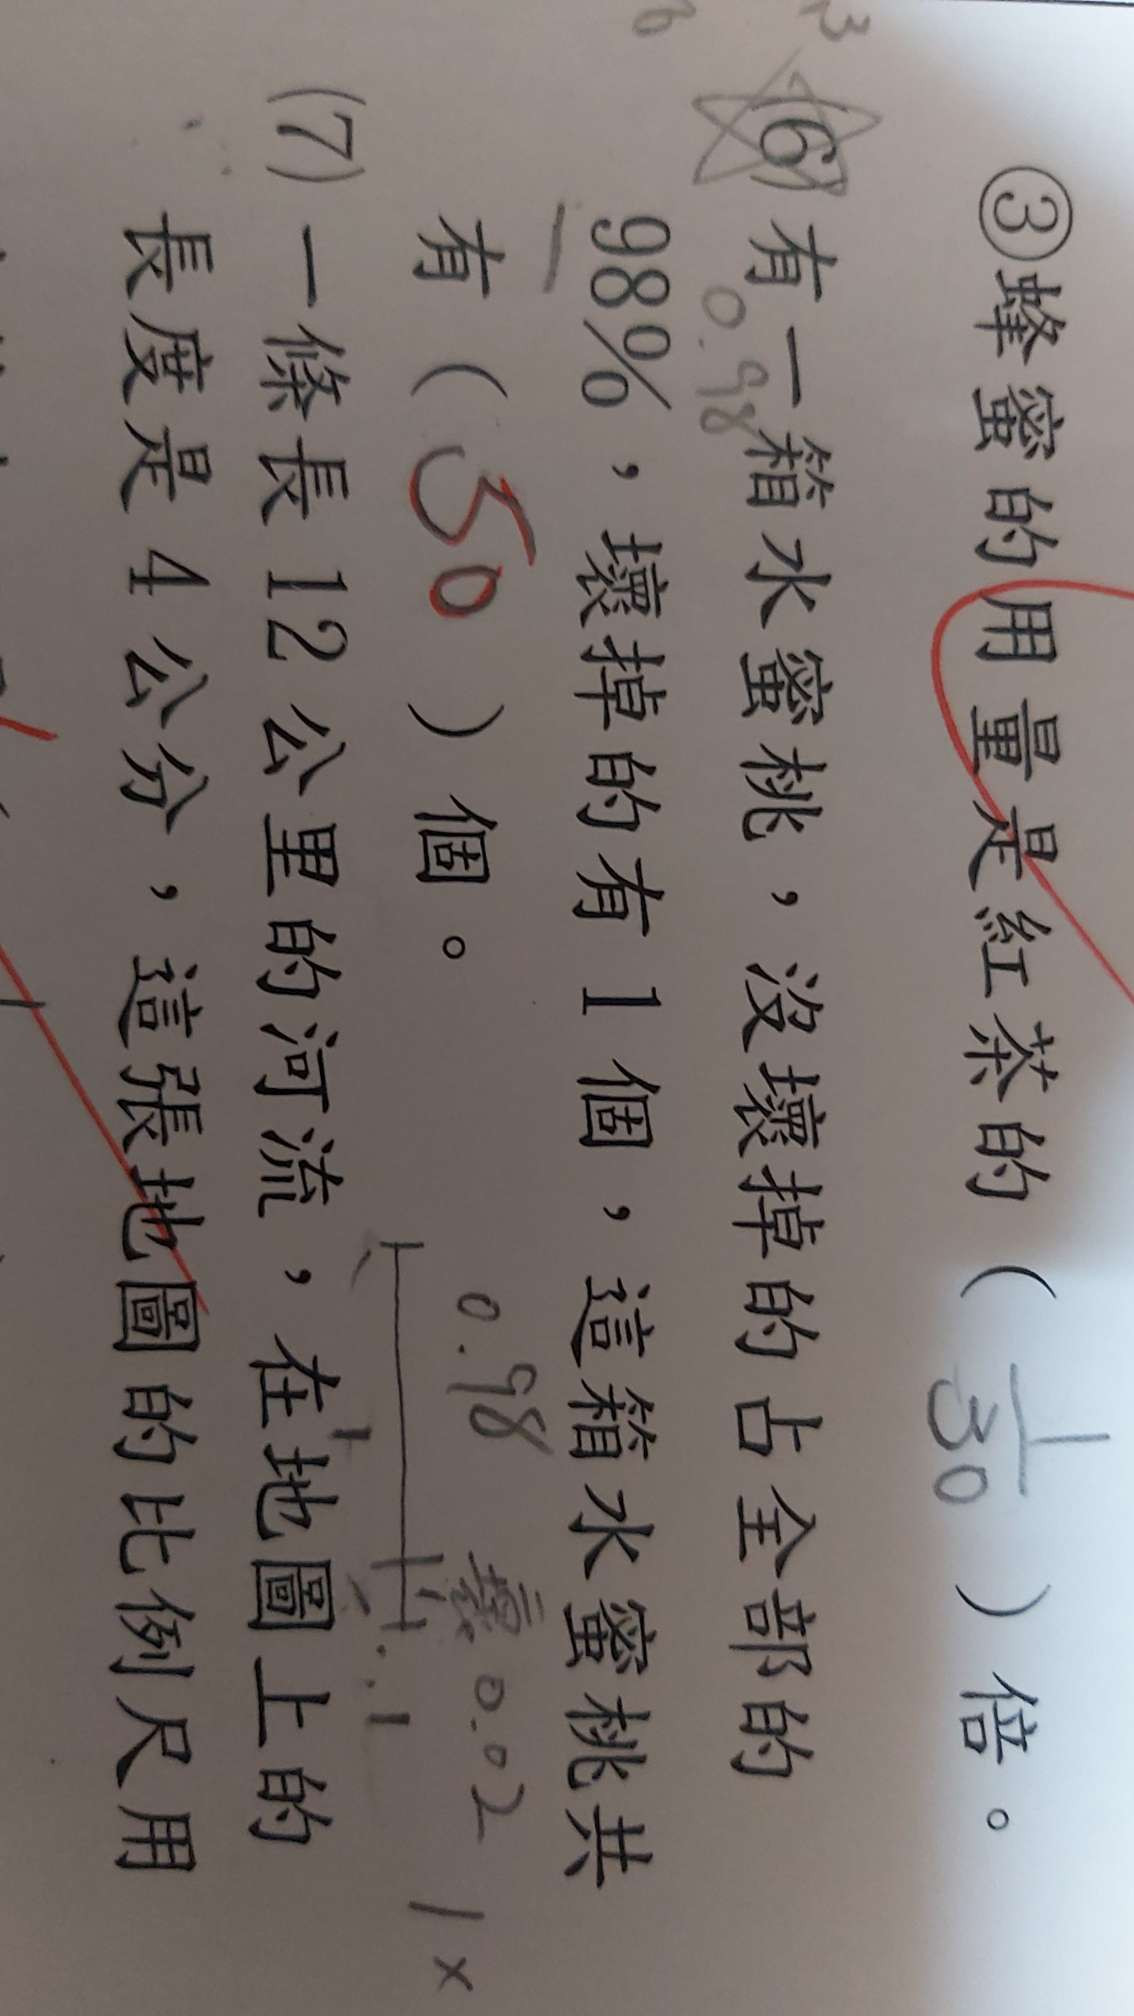 ③蜂蜜的用量是紅茶的（1/30）倍。
(6)有一箱水蜜桃，沒壞掉的占全部的
0.98
98%，壞掉的有1個，這箱水蜜桃共
有（50）個。
0.98 壞0.02 1×
(7)一條長12公里的河流，在地圖上的
長度是4公分，這張地圖的比例尺用